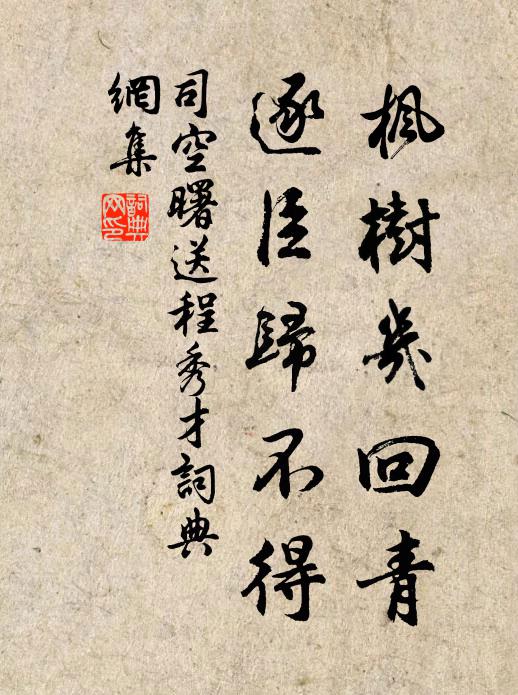 楓樹幾回青
逐臣歸不得
司空曙送程秀才詞典
網集
詞典
网印